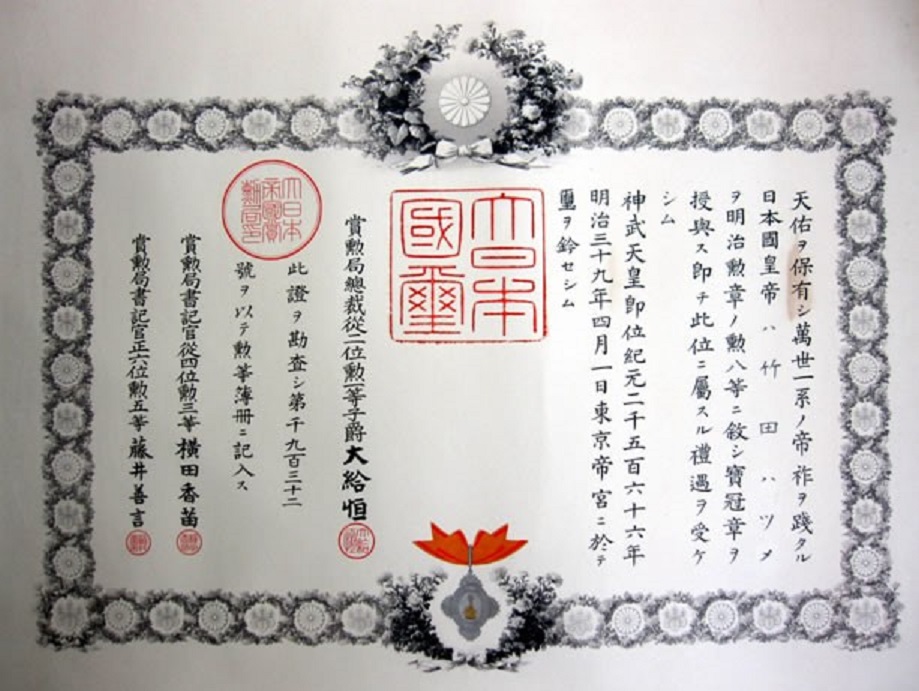 天佑ヲ保有シ萬世一系ノ帝祚ヲ踐タル
日本國皇帝ハ竹田ハツメ
ヲ明治勲章ノ勲八等ニ敘シ寶冠章ヲ
授與ス即チ此位ニ屬スル禮遇ヲ受ケ
シム
神武天皇即位紀元二千五百六十六年
明治三十九年四月一日東京帝宮ニ於テ
璽ヲ鈐セシム
大日本
國璽
賞勲局總裁從二位勲一等子爵大給恒
大日本
帝國賞
勲局印
此證ヲ勘査シ第千九百三十二
號ヲ以テ勲等簿册ニ記入ス
賞勲局書記官從四位勲三等横田香苗
賞勲局書記官正六位勲五等藤井善言